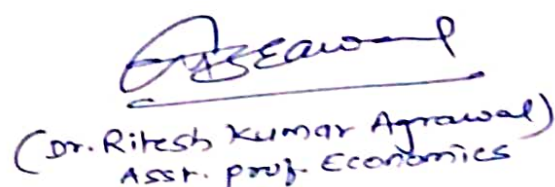 Agrawal
(Dr. Ritesh Kumar Agrawal)
Asst. prof. Economics